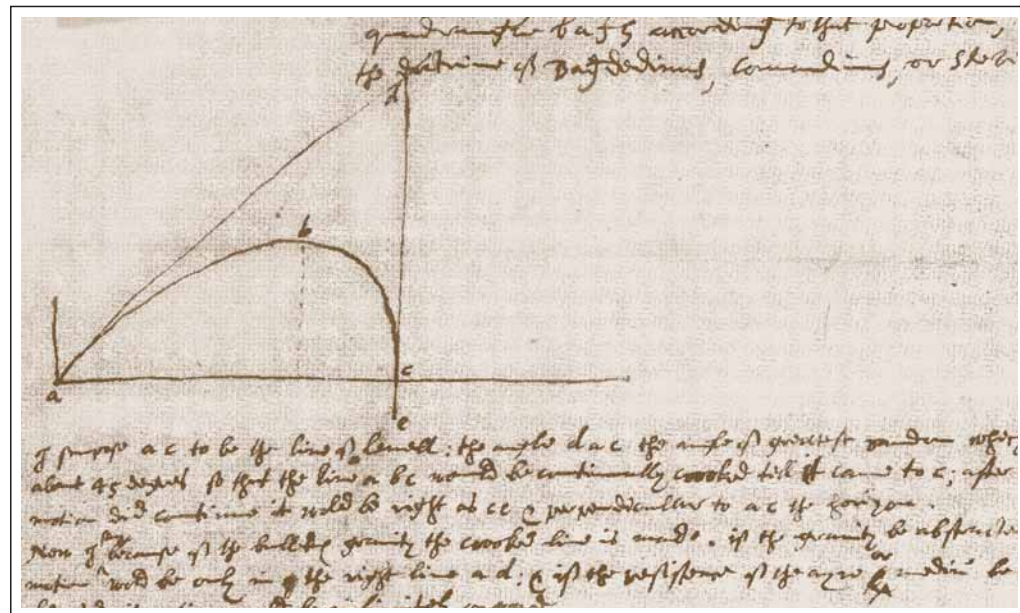 quadrangle b a f h according to that proportion,
the doctrine of Bagdedinus, Comandinus, or Stevi
d
b
c
a
e
suppose a c to be the line of levell; the angle d a c the angle of greatest randon which
about 45 degres so that the line a b c would be continually crooked till it came to c; after
motion did continue it wold be right as c e & perpendicular to a c the horizon.
Now because of the bulletes gravity the crooked line is made. if the gravity be abstracte
motion wold be only in the right line a d; & if the resistence of the ayre or medium be